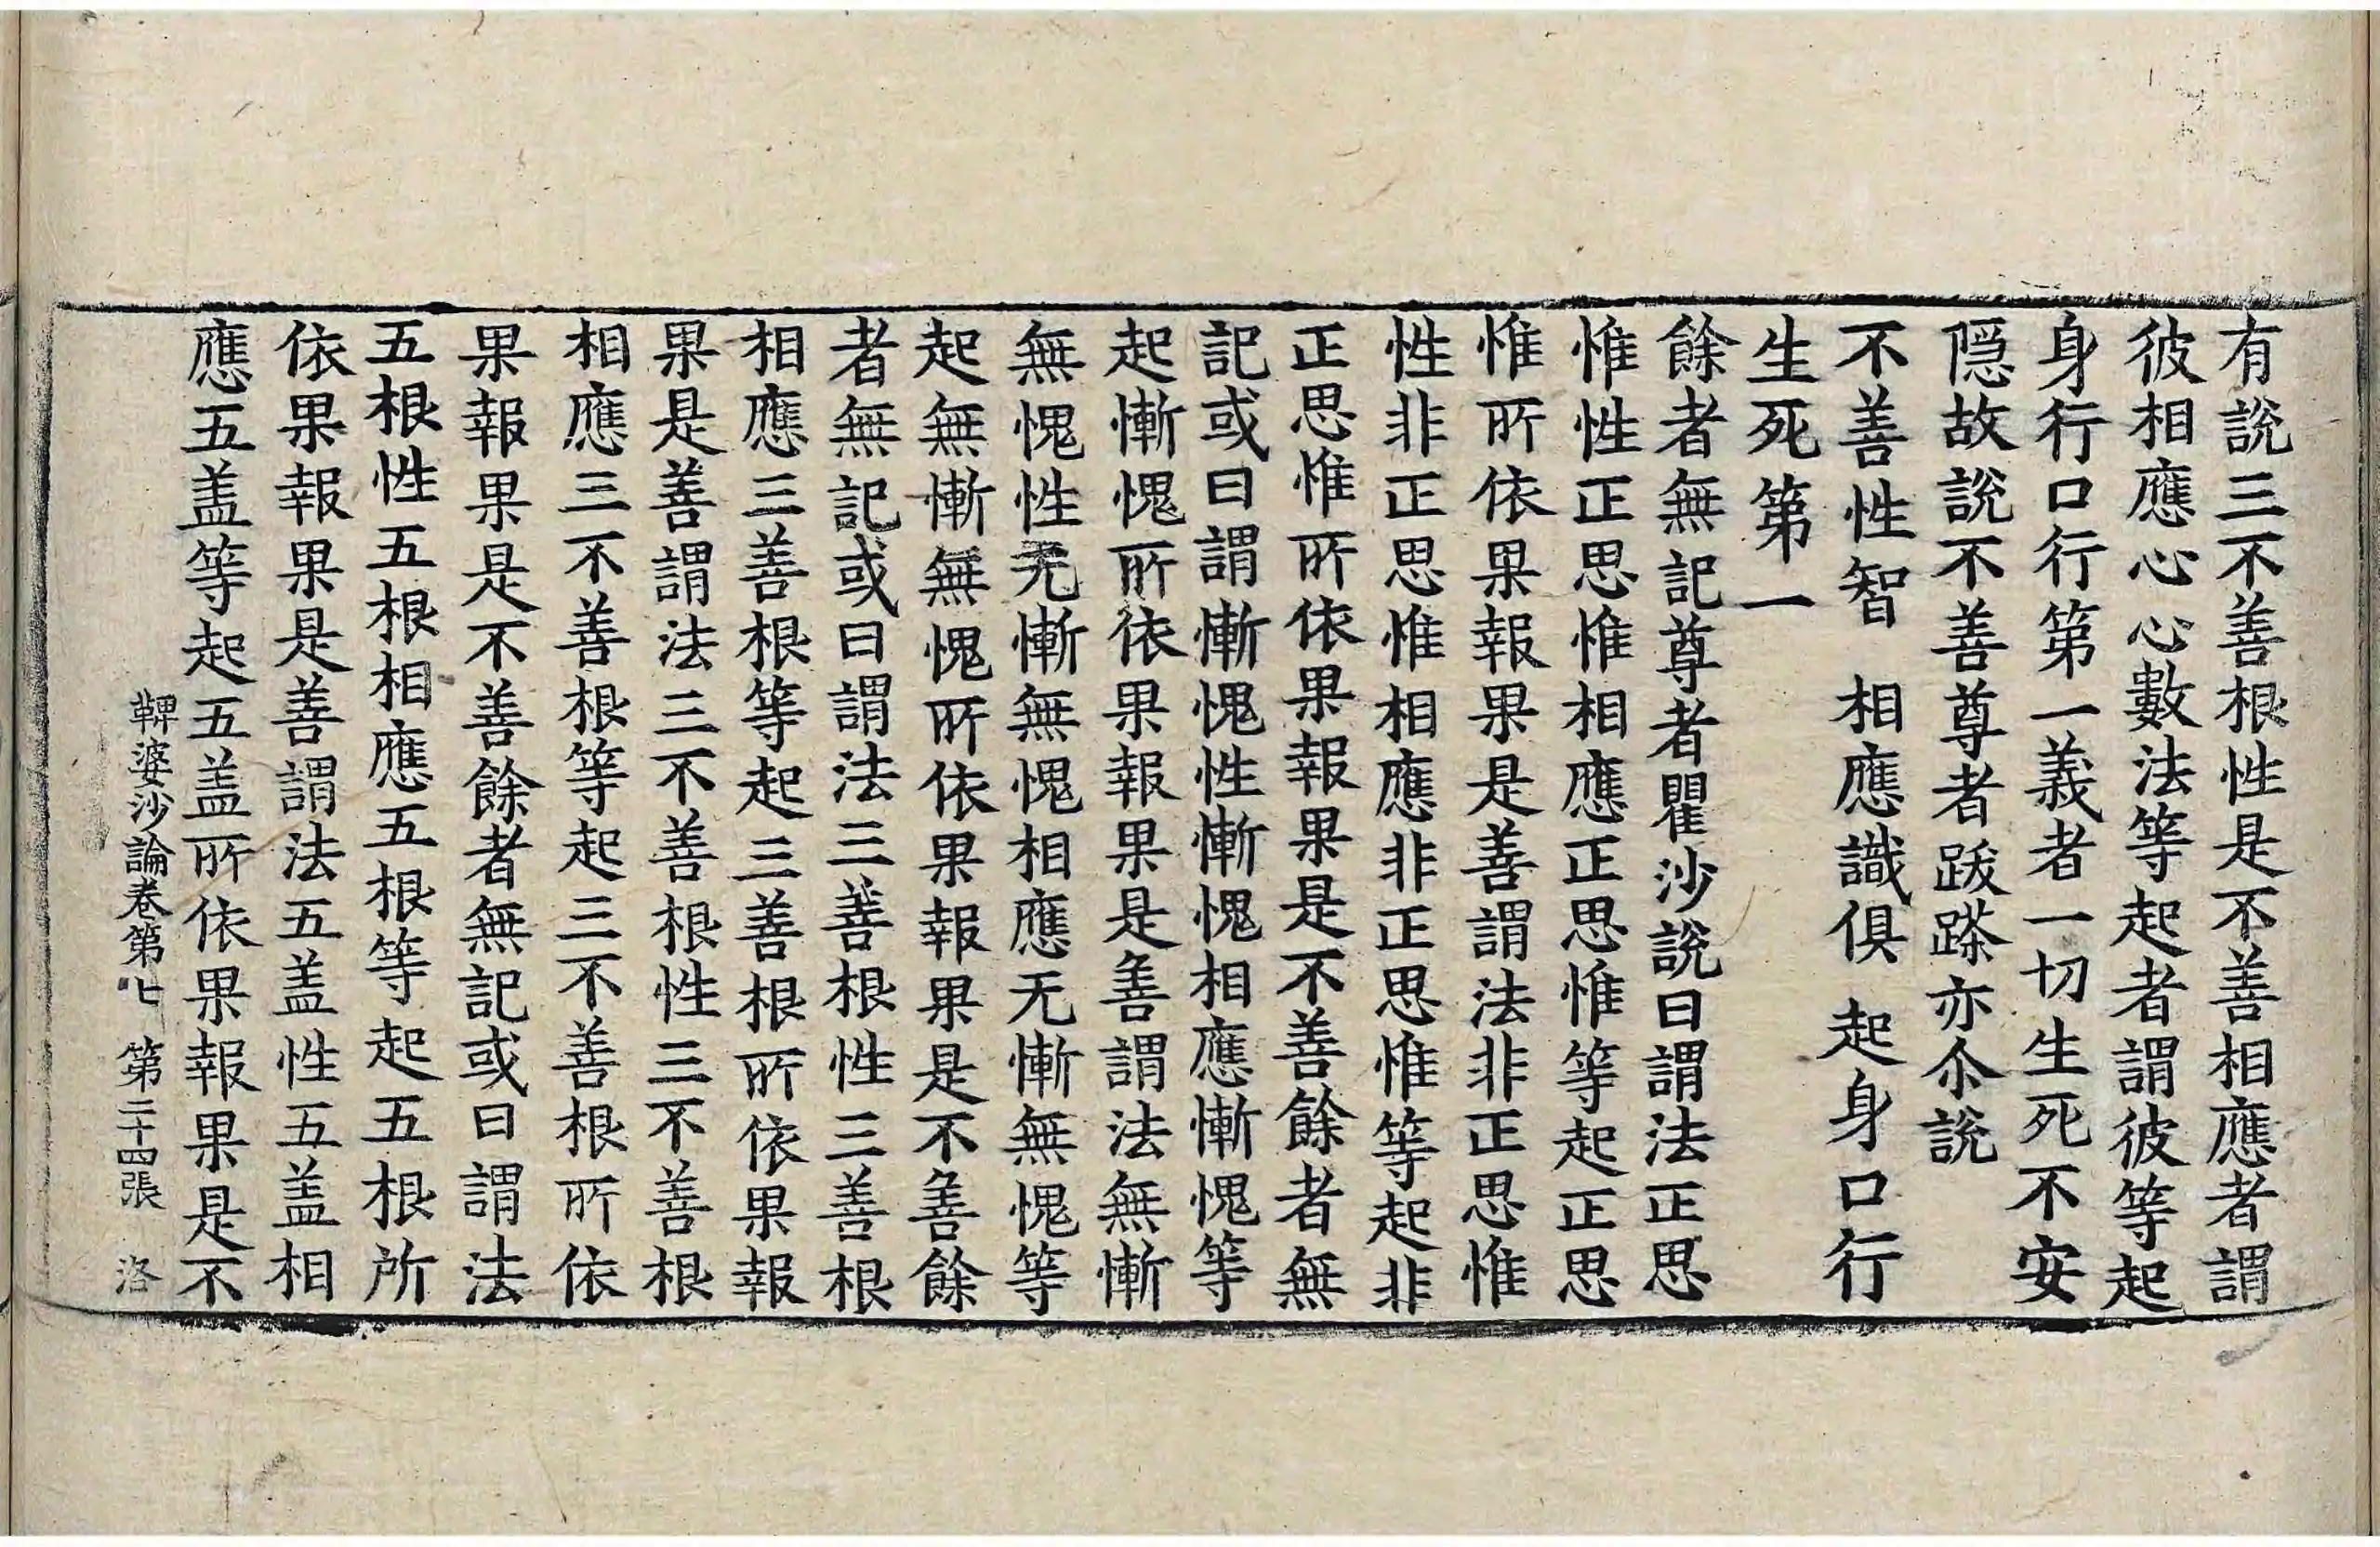 有說三不善根性是不善相應者謂
彼相應心心數法等起者謂彼等起
身行口行第一義者一切生死不安
隠故說不善尊者跋𨅖亦尒說
不善性智　相應識俱　起身口行
生死第一
餘者無記尊者瞿沙說曰謂法正思
惟性正思惟相應正思惟等起正思
惟所依果報果是善謂法非正思惟
性非正思惟相應非正思惟等起非
正思惟所依果報果是不善餘者無
記或曰謂慚愧性慚愧相應慚愧等
起慚愧所依果報果是善謂法無慚
無愧性无慚無愧相應无慚無愧等
起無慚無愧所依果報果是不善餘
者無記或曰謂法三善根性三善根
相應三善根等起三善根所依果報
果是善謂法三不善根性三不善根
相應三不善根等起三不善根所依
果報果是不善餘者無記或曰謂法
五根性五根相應五根等起五根所
依果報果是善謂法五盖性五盖相
應五盖等起五盖所依果報果是不
鞞婆沙論卷第七　第二十四張　洛